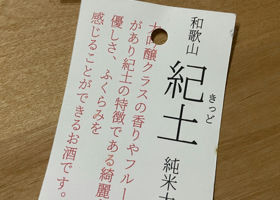 和歌山
紀土
きっど
純米大
大吟醸クラスの香りやフルー
があり紀土の特徴である綺麗
優しさ、ふくらみを
感じることができるお酒です。